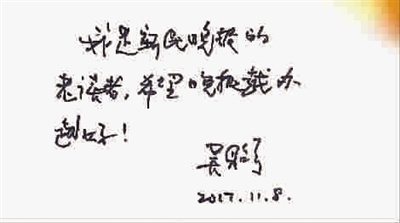 我是新民晚报的
老读者,希望晚报越办
越好!
吴
2017.11.8.